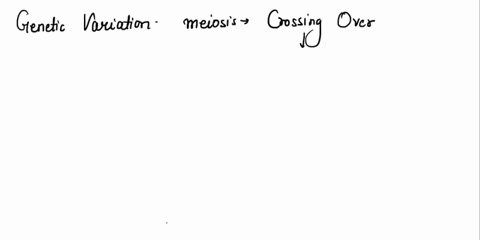 Genetic Variation. meiosis → Crossing Over